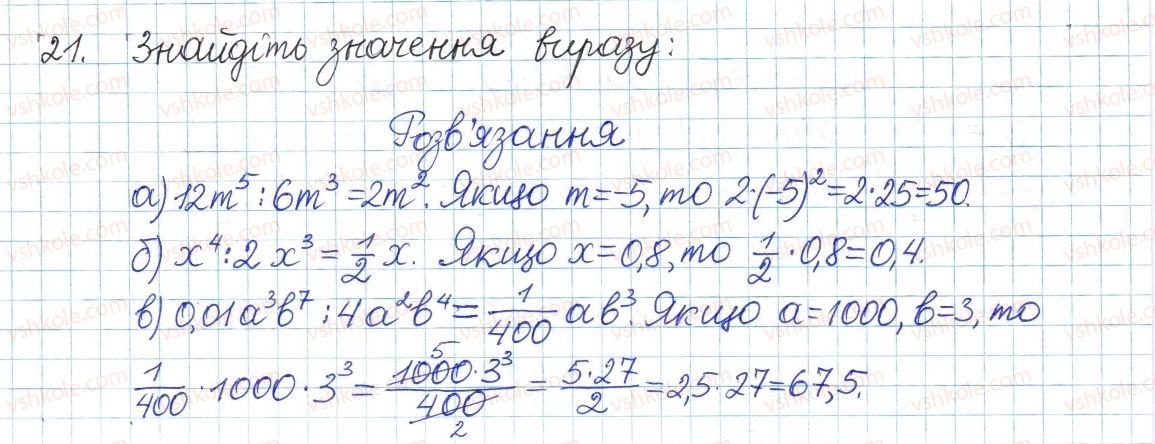 21. Знайдіть значення виразу:
Розв'язання
а) 12m⁵ : 6m³ = 2m². Якщо m = -5, то 2·(-5)² = 2·25 = 50.
б) x⁴ : 2x³ = 1/2 x. Якщо x = 0,8, то 1/2 · 0,8 = 0,4.
в) 0,01a³b⁷ : 4a²b⁴ = 1/400 ab³. Якщо a = 1000, b = 3, то
1/400 · 1000 · 3³ = 1000 5 · 3³ / 400 2 = 5·27/2 = 2,5·27 = 67,5.